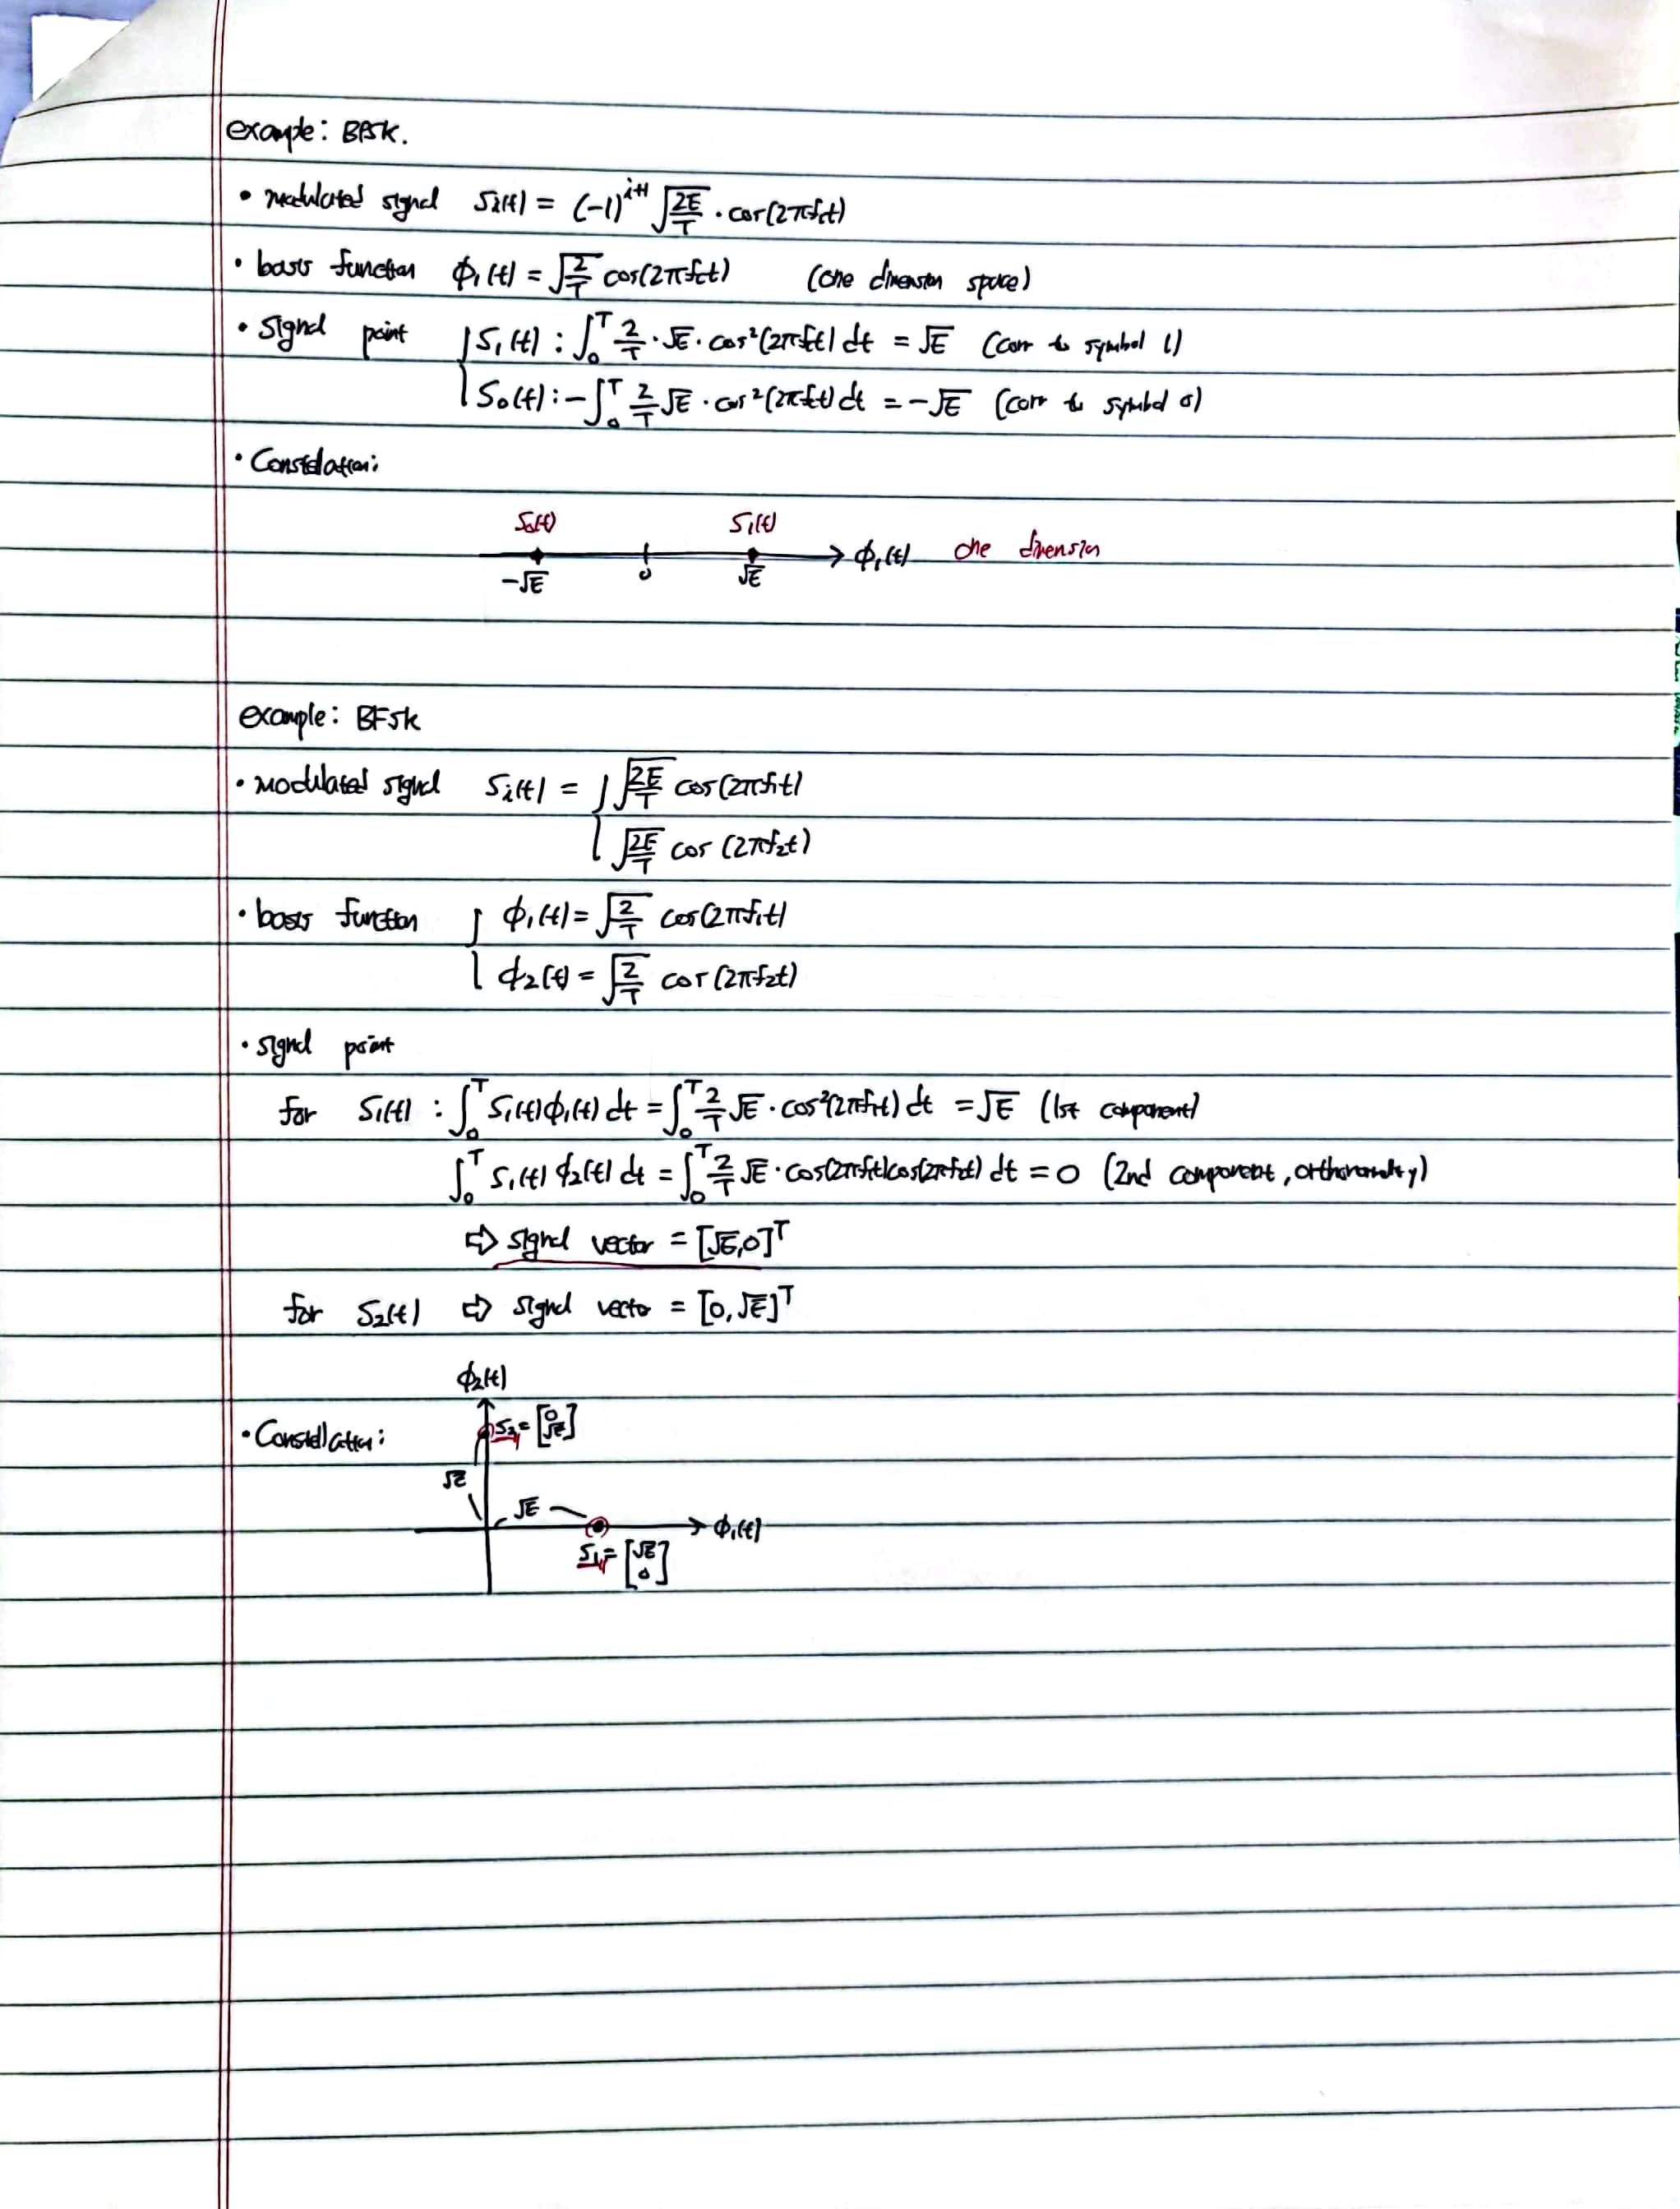 example: BPSK.
• modulated signal Si(t) = (-1)^{i+1} √(2E/T) · cos(2πfct)
• basis function ϕ1(t) = √(2/T) cos(2πfct) (one dimension space)
• signal point { S1(t) : ∫_0^T 2/T · √E · cos²(2πfct) dt = √E (corr to symbol 1)
S0(t) : -∫_0^T 2/T √E · cos²(2πfct) dt = -√E (corr to symbol 0)
• Constellation:
S0(t) S1(t)
ϕ1(t) one dimension
-√E 0 √E
example: BFSK
• modulated signal Si(t) = { √(2E/T) cos(2πf1t)
√(2E/T) cos(2πf2t)
• basis function { ϕ1(t) = √(2/T) cos(2πf1t)
ϕ2(t) = √(2/T) cos(2πf2t)
• signal point
for S1(t) : ∫_0^T S1(t)ϕ1(t) dt = ∫_0^T 2/T √E · cos²(2πf1t) dt = √E (1st component)
∫_0^T S1(t) ϕ2(t) dt = ∫_0^T 2/T √E · cos(2πf1t)cos(2πf2t) dt = 0 (2nd component,
⇒ signal vector = [√E, 0]^T
for S2(t) ⇒ signal vector = [0, √E]^T
ϕ2(t)
• Constellation: S2 = [0 √E]
√E
√E ϕ1(t)
S1 = [√E 0]